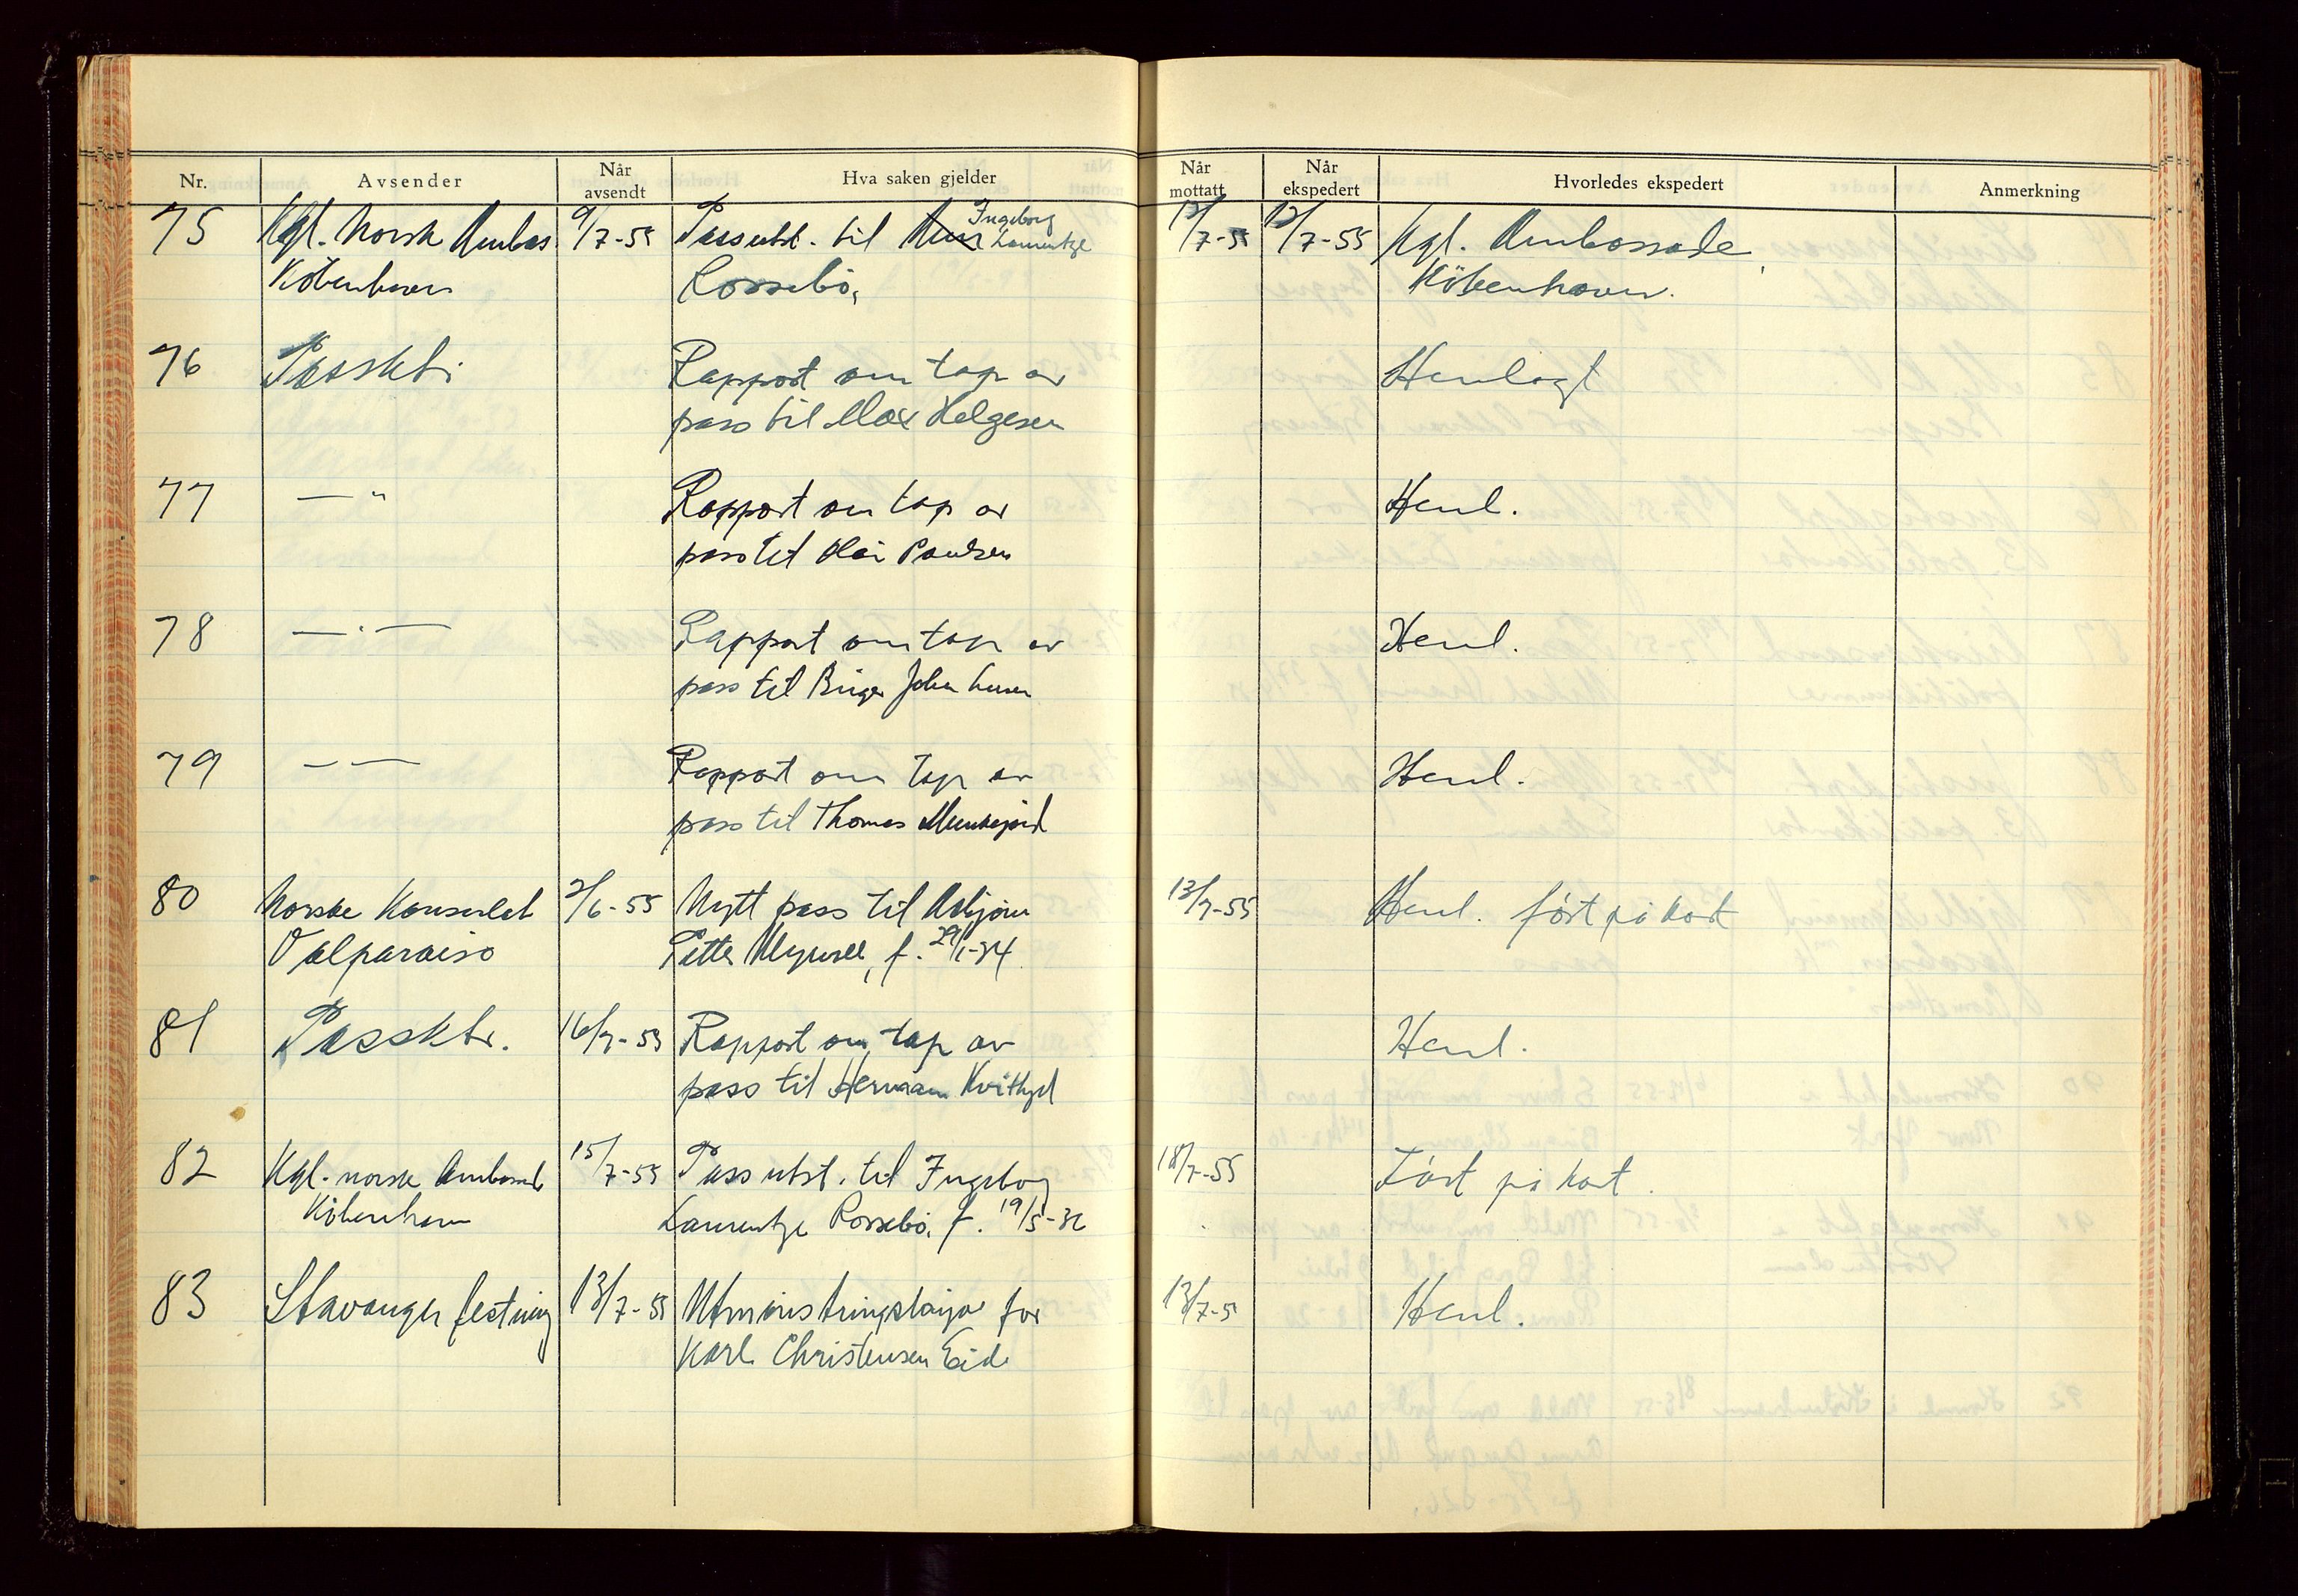 Nr. Avsender Når avsendt Hva saken gjelder Når mottatt Når ekspedert Hvorledes ekspedert Anmerkning
75 Kgl. Norsk Ambas 9/7-55 Passutst. til Ingeborg Laurentze 12/7-55 12/7-55 Kgl. Ambassade
København Rossebø, København.
76 Passktr. Rapport om tap av Henlagt
pass til Max Helgesen
77 — " Rapport om tap av Henl.
pass til Paulsen
78 — . — Rapport om tap av Henl.
pass til Birger Johan
79 — — Rapport om tap av Henl.
pass til Thomas Munkejord
80 Norske Konsulat 2/6-55 Nytt pass til Asbjørn 13/7-55 Henl. ført på kort
Valparaiso Petter f. 29/1-34
81 Passktr. 16/7-55 Rapport om tap av Henl.
pass til Herman
82 Kgl. norske Ambassade 15/7-55 Pass utst. til Ingeborg 18/7-55 Ført på kort.
København Laurentze Rossebø, f. 19/5-32
83 Stavanger festning 13/7-55 Utmønstringstaija for 13/7-5 Henl.
Karl Christensen Eide